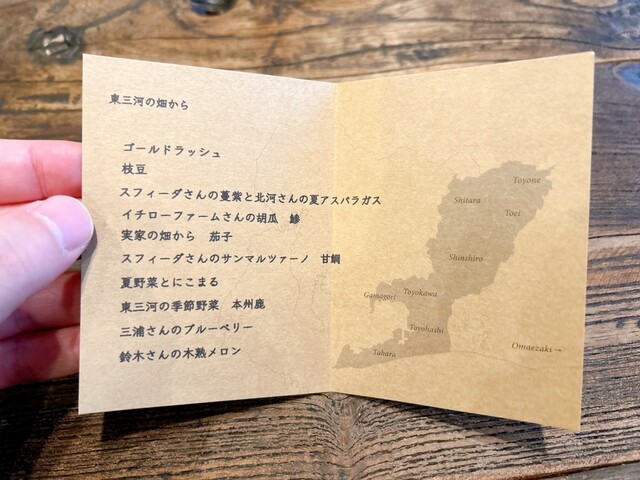 東三河の畑から
ゴールドラッシュ
枝豆
スフィーダさんの蔓紫と北河さんの夏アスパラガス
イチローファームさんの胡瓜　鯵
実家の畑から　茄子
スフィーダさんのサンマルツァーノ　甘鯛
夏野菜とにこまる
東三河の季節野菜　本州鹿
三浦さんのブルーベリー
鈴木さんの木熟メロン
Toyone
Shitara
Toei
Shinshiro
Gamagori
Toyokawa
Toyohashi
Tahara
Omaezaki→